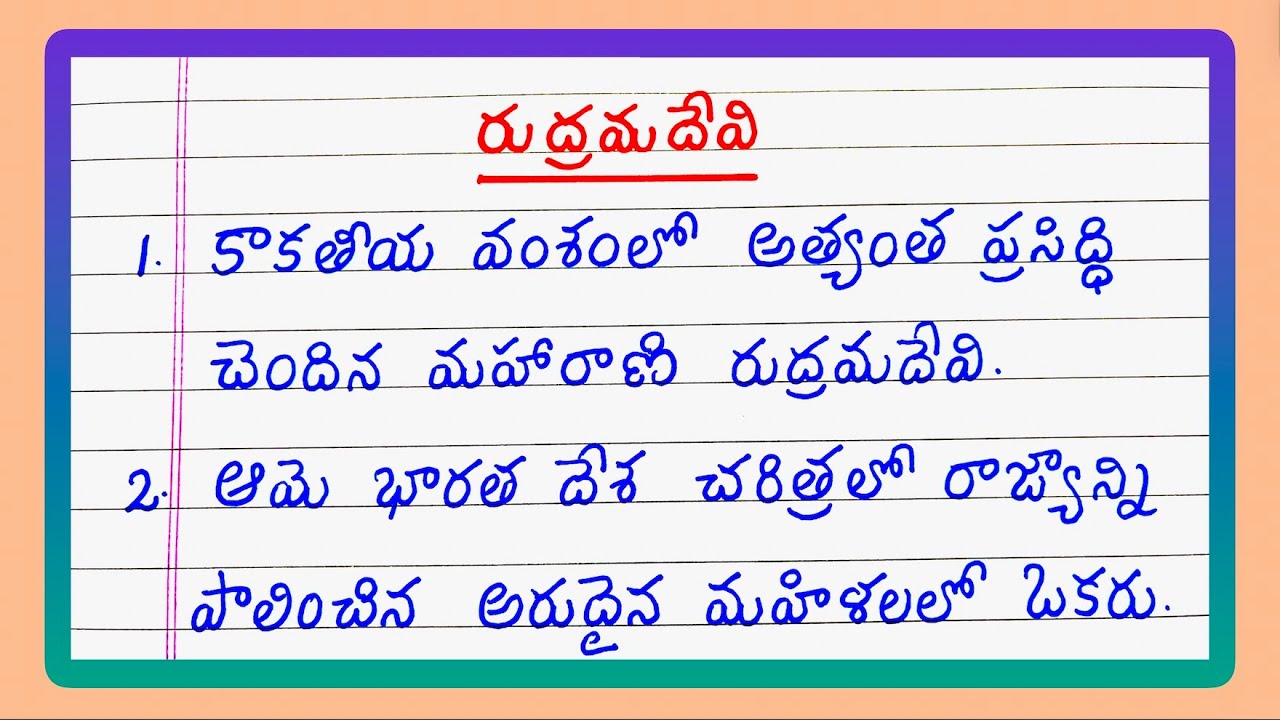 రుద్రమదేవి
1. కాకతీయ వంశంలో అత్యంత ప్రసిద్ధి
చెందిన మహారాణి రుద్రమదేవి.
2. ఆమె భారత దేశ చరిత్రలో రాజ్యాన్ని
పాలించిన అరుదైన మహిళలలో ఒకరు.